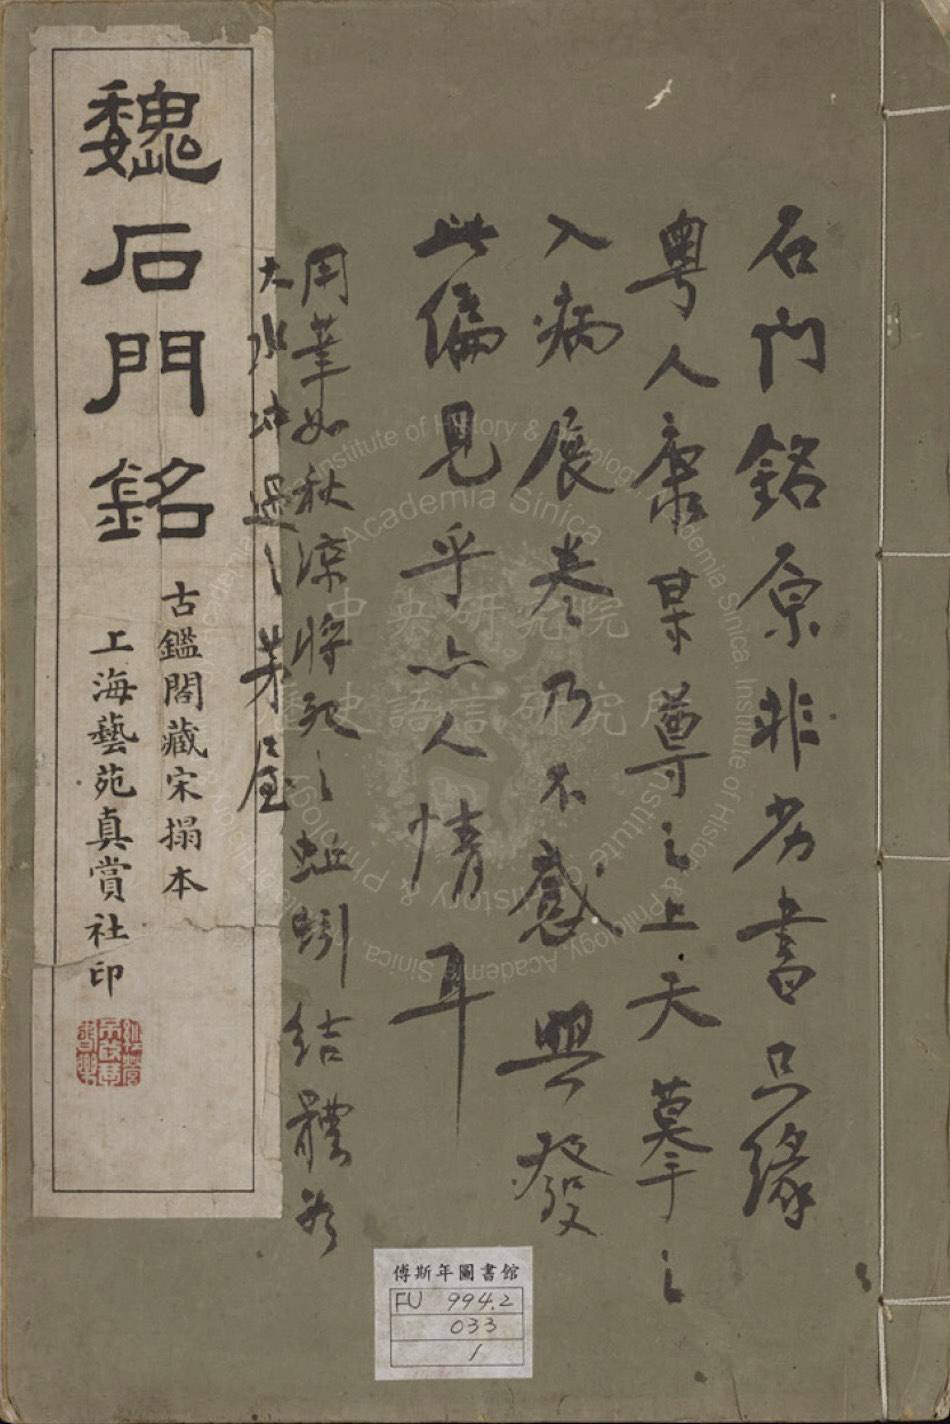 石門銘原非劣書只緣
粤人康某尊之上天摹之
入病展卷乃不感興發
此偏見乎亦人情耳
用筆如秋深將死之蚯蚓結體若
大水冲過之茅屋
魏石門銘
古鑑閣藏宋搨本
上海藝苑真賞社印
傅斯年圖書館
FU 994.2
033
1
中央研究院
歷史語言研究所
Institute of History & Philology, Academia Sinica